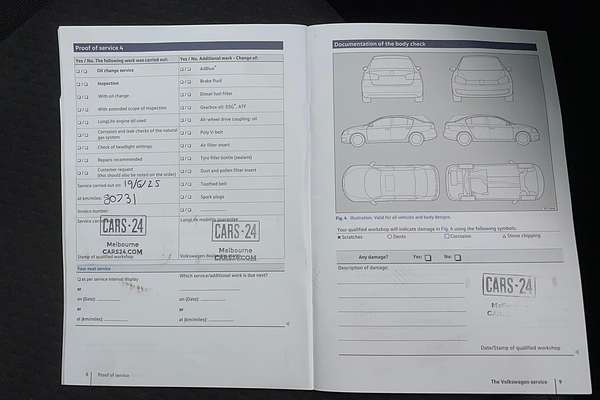 Proof of service 4
Yes / No. The following work was carried out:
Yes / No. Additional work - Change of:
Oil change service
AdBlue®
Inspection
Brake fluid
With oil change
Diesel fuel filter
With extended scope of inspection
Gearbox oil: DSG®, ATF
LongLife engine oil used
All-wheel drive coupling: oil
Corrosion and leak checks of the natural
gas system
Poly V-belt
Check of headlight settings
Air filter insert
Repairs recommended
Tyre filler bottle (sealant)
Customer request
(this should also be noted on the order)
Dust and pollen filter insert
Service carried out on: 19/6/25
Toothed belt
at km/miles: 30731
Spark plugs
Invoice number
Service
LongLife mobility guarantee
CARS-24
Melbourne
CARS24.COM
CARS-24
Melbourne
CARS24.COM
Stamp of qualified workshop
Volkswagen
Your next service
as per service interval display
Which service/additional work is due next?
or
on (Date):
on (Date):
or
or
at (km/miles):
at (km/miles):
8 Proof of service
Documentation of the body check
Fig. 4 Illustration: Valid for all vehicles and body designs.
Your qualified workshop will indicate damage in Fig. 4 using the following symbols:
Scratches
Dents
Corrosion
Stone chipping
Any damage? Yes: No:
Description of damage:
CARS-24
Date/Stamp of qualified workshop
The Volkswagen service 9